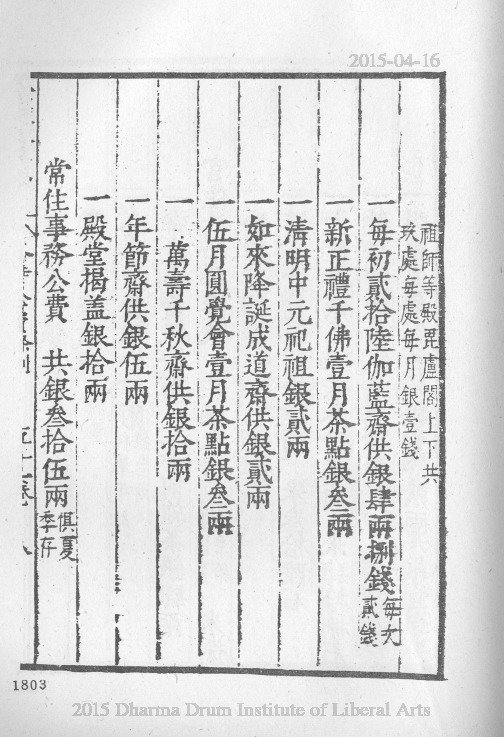 2015-04-16
祖師等殿毘盧閣上下共
玖處每處每月銀壹錢
一每初貳拾陸伽藍齋供銀肆兩捌錢每次貳錢
一新正禮千佛壹月茶點銀叁兩
一清明中元祀祖銀貳兩
一如來降誕成道齋供銀貳兩
一伍月圓覺會壹月茶點銀叁兩
一萬壽千秋齋供銀拾兩
一年節齋供銀伍兩
一殿堂揭盖銀拾兩
常住事務公費 共銀叁拾伍兩俱夏季存
1803
2015 Dharma Drum Institute of Liberal Arts